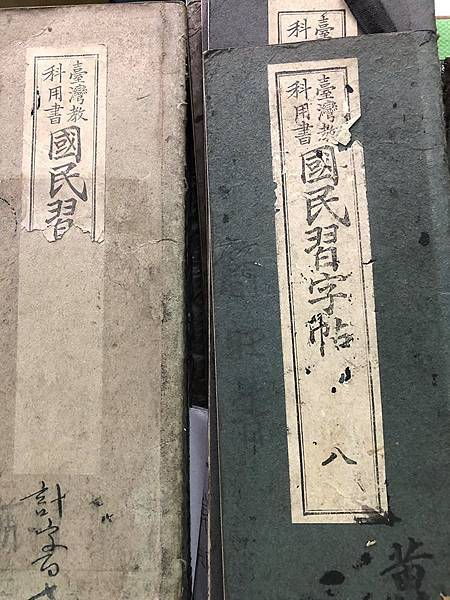 臺灣教
科用書
國民習
臺
科
臺灣教
科用書
國民習字帖
八
黃